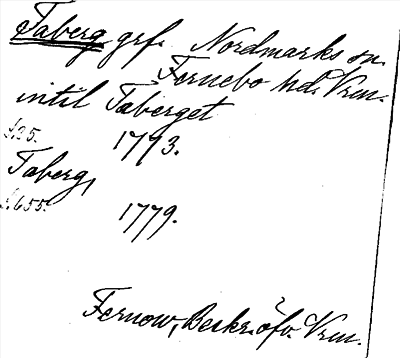 Taberg grf. Nordmarks sn.
Fernebo hd. Vrm.
intil Taberget
s. 35. 1793.
Taberg,
s. 655. 1779.
Fernow, Beskr. öfv. Vrm.